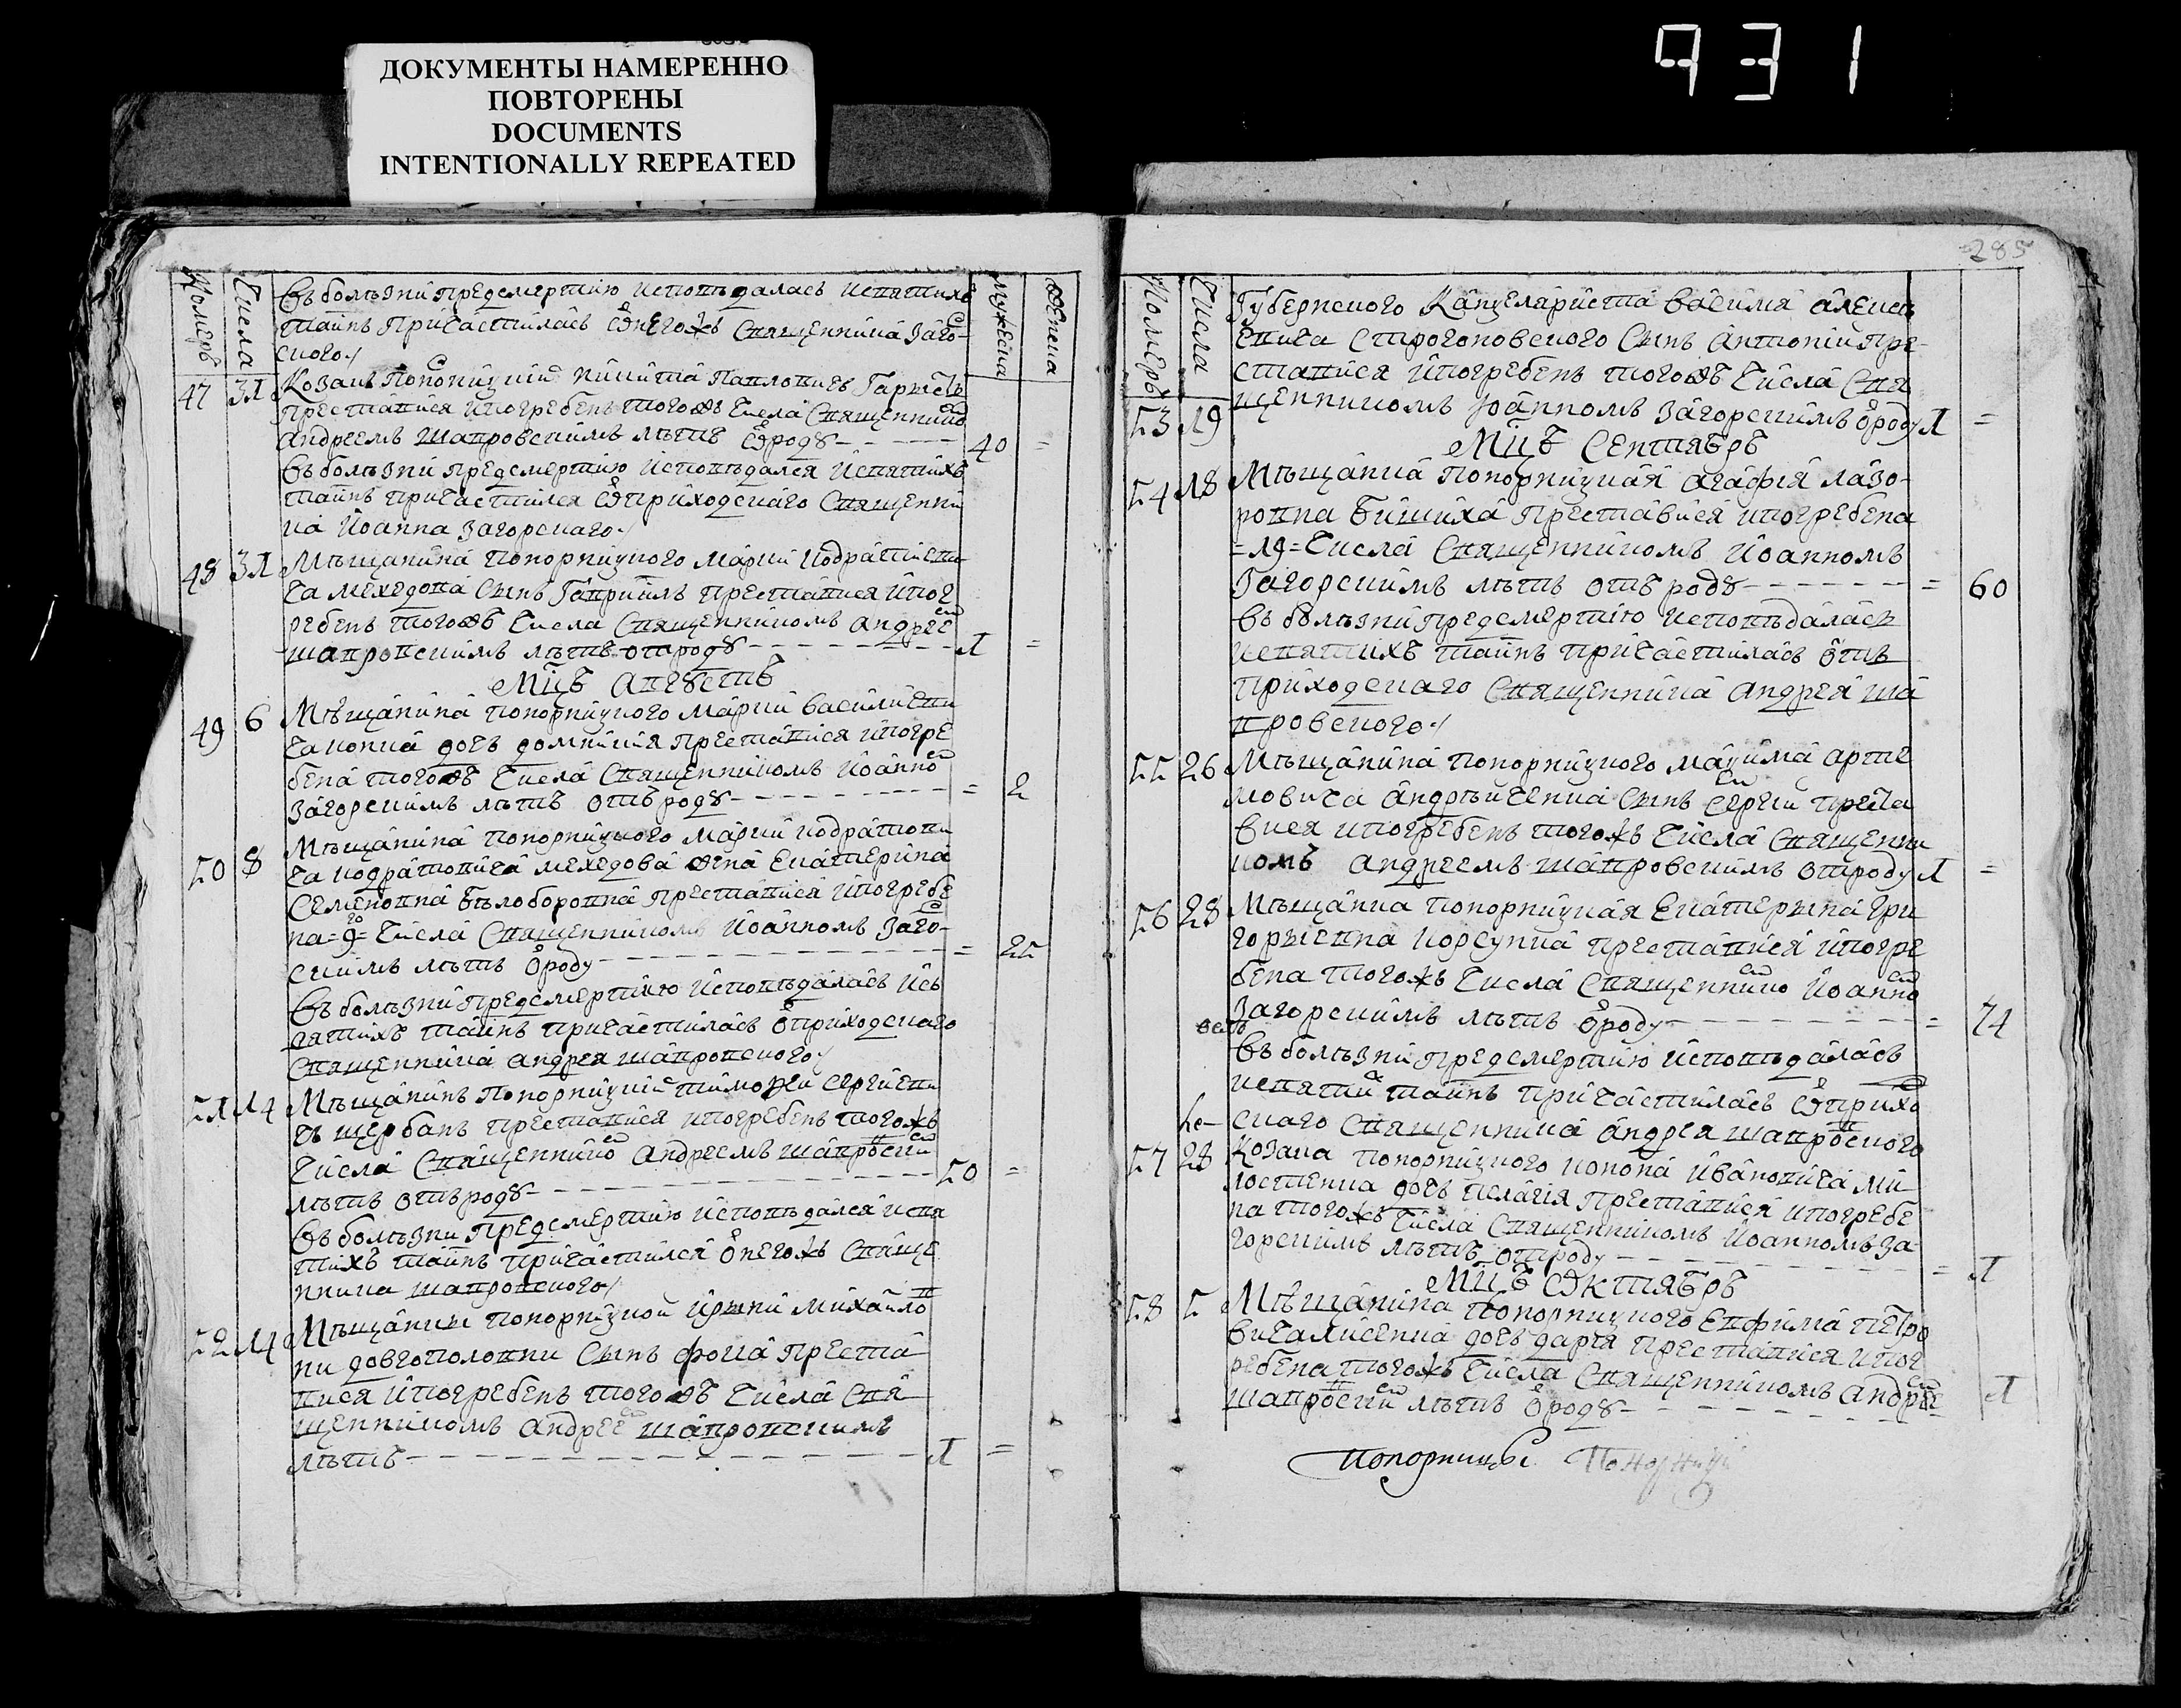 ДОКУМЕНТЫ НАМЕРЕННО
ПОВТОРЕНЫ
DOCUMENTS
INTENTIONALLY REPEATED
931
Номеръ Числа мужеска женска
въ болѣзни предсмертню исповѣдалась исвятихъ
таинъ причастилась ѿ негожъ священника Заго-
ского
47 31 Козакъ Понорницкий никита павловичъ
преставися ипогребенъ тогожъ числа священнико
андреемъ шапровскимъ лѣтъ ѿроду 40 =
въ болѣзни предсмертню исповѣдался исвятихъ
таинъ причастился ѿ приходскаго священни
ка Иоанна Загорскаго
48 31 Мѣщанина понорницкого марки кодратиеви
ча мехедова сынъ Гавриилъ преставися ипог
ребенъ тогожъ числа священникомъ андрее
шапровскимъ лѣтъ отроду 1 =
Мцъ августъ
49 6 Мѣщанина понорницкого марки василиеви
ча дочь домникия преставися ипогре
бена тогожъ числа священникомъ Иоанно
Загорскимъ лѣтъ отъ роду = 2
50 8 Мѣщанина понорницкого марки кодратови
ча кодратовича мехедова жена Екатерина
Семеновна бѣлоборовна преставися ипогребе
на =9= числа священникомъ Иоанномъ Заго-
скимъ лѣтъ ѿроду = 25
Въ болѣзни предсмертню исповѣдалась исъ
вятихъ таинъ причастилась ѿ приходскаго
священника андрея шапровского
51 14 Мѣщанинъ понорницкий тимофеи сергиеви
чъ щербакъ преставися ипогребенъ тогожъ
числа священнико андреемъ шапровски
лѣтъ отъроду 50 =
Въ болѣзни предсмертню исповѣдался исвя
тихъ таинъ причастился ѿ негожъ священ
нника шапровского
52 14 Мѣщанки понорницкой ирини михаило
ни довгополовни сынъ фока преста
вися ипогребенъ тогожъ числа свя
щенникомъ андрее шапровскимъ
лѣтъ 1 =
285
Номеръ Числа
Губернского Канцеляриста васили алекси
евича строгоновского сынъ антоний пре
ставися ипогребенъ тогожъ числа свя
53 19 щенникомъ Иоанномъ Загорскимъ ѿроду 1 =
Мцъ Сентябръ
54 18 Мѣщанка понорницкая агафия лазо-
ровна преставися ипогребена
=19= числа священникомъ Иоанномъ
Загорскимъ лѣтъ отъ роду = 60
въ болѣзни предсмертню исповѣдалась
исвятихъ таинъ причастилась ѿтъ
приходскаго священника андрея ша
провского
55 26 Мѣщанина понорницкого макима арте
мовича андрѣиченка сынъ сергии преста
вися ипогребенъ тогожъ числа священни
комъ андреемъ шапровскимъ отроду 1 =
56 28 Мѣщанка понорницкая Екатерына гри
горыевна корсунка преставися ипогре
бена тогожъ числа священнико Иоанно
Загорскимъ лѣтъ ѿроду = 74
Въ болѣзни предсмертню исповѣдалась
исвяти таинъ причастилась ѿ прихо
скаго священника андрея шапровского
57 28 Козака понорницкого конона ивановича ми
лостенка дочь пелагия преставися ипогребе
на тогожъ числа священникомъ Иоанномъ за
горскимъ лѣтъ отроду = 1
Мцъ Октябръ
58 5 Мѣщанина понорницкого Евфима петро
вича лисенка дочь дария преставися ипог
ребена тогожъ числа священникомъ андрее
шапровски лѣтъ ѿроду 1